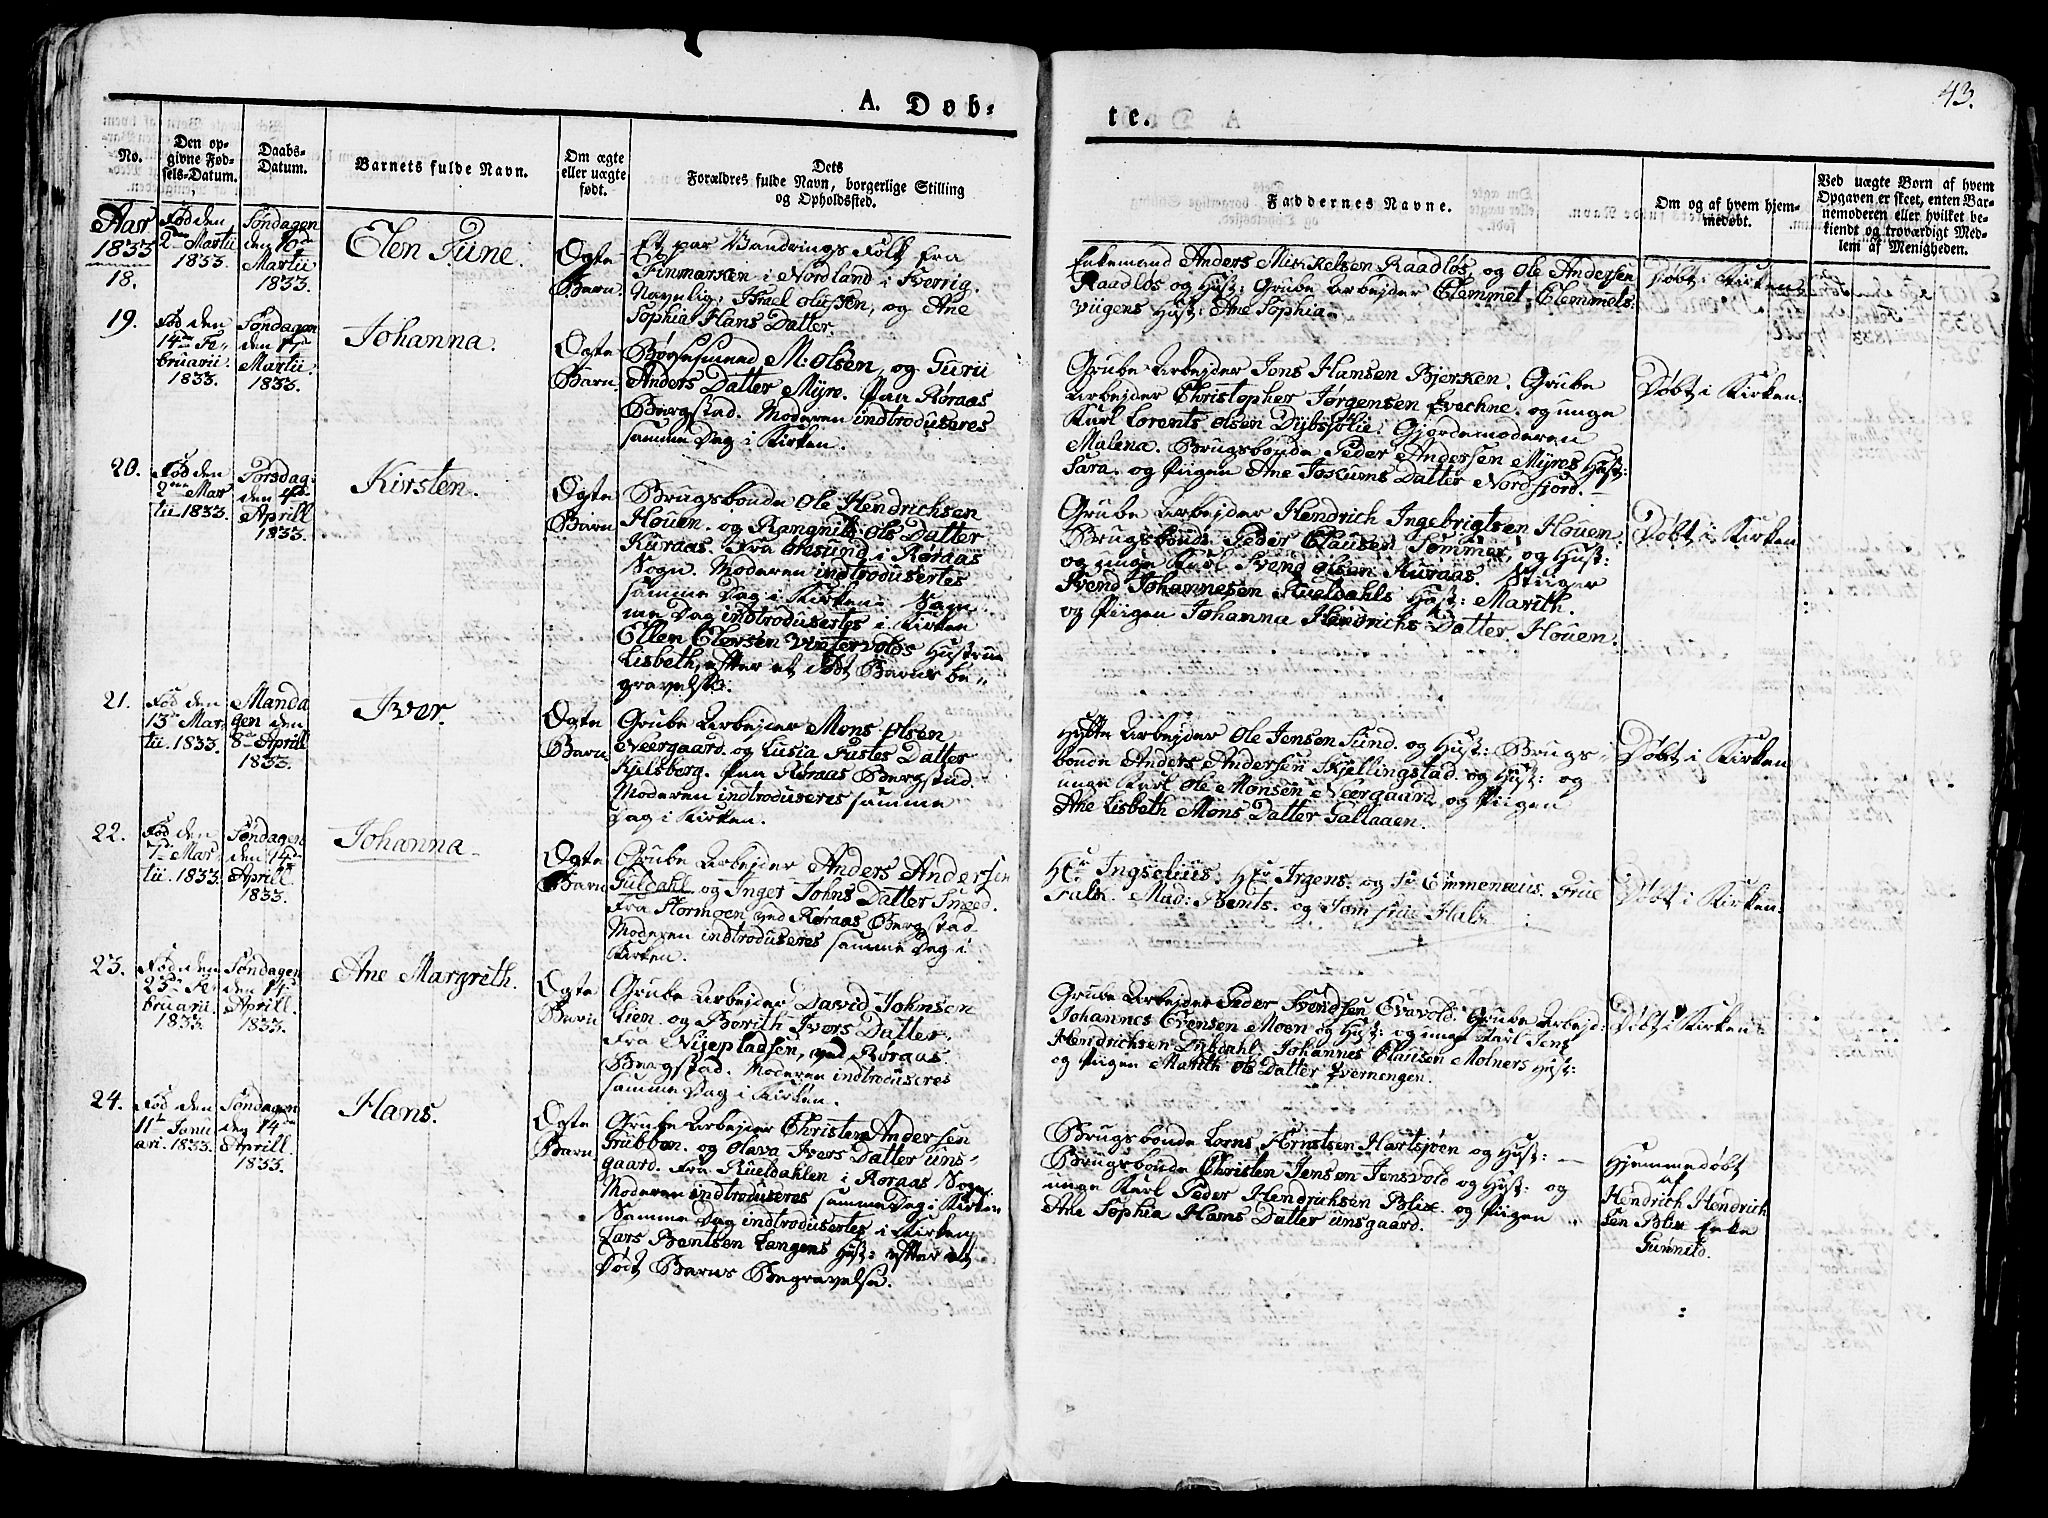 43.
A. Døb-
te.
No.
Den op-
givne Fød-
sels-Datum.
Daabs-
Datum.
Barnets fulde Navn.
Om ægte
eller uægte
født.
Dets
Forældres fulde Navn, borgerlige Stilling
og Opholdssted.
Faddernes Navne.
Om og af hvem hjem-
medøbt.
Ved uægte Børn af hvem
Opgaven er skeet, enten Bar-
nemoderen eller hvilket be-
kiendt og troværdigt Med-
lem af Menigheden.
Aar
1833
18.
Fød den
2den Martii
1833.
Søndagen
den 10de
Martii
1833.
Elen Sine.
Ægte
Barn.
Et par Vandrings Folk fra
Finmarken i Nordland i Sverrig.
Navnlig: Israel Olessen, og Ane
Sophia Hans Datter.
Enkemand Anders Mikkelsen Raadløs, og Ole Andersen
Raadlös og Hust: Grube Arbejder Clemmet Clemmets:
Viigens Hust: Ane Sophia
Døbt i Kirken
19.
Fød den
14de Fe-
bruarii.
1833.
Søndagen
den 17de
Martii.
1833.
Johanna.
Ægte
Barn.
Børsesmed M: Olsen, og Guru
Anders Datter Myre. Paa Røraas
Bergstad. Moderen indtroduseres
samme Dag i Kirken.
Grube Arbejder Jons Hansen Bjerken. Grube
Arbejder Christopher Jørgensen Evechne. og unge
Karl Lorents Olsen Dybsjølie. Gjordemoderen
Malena. Brugsbonde Peder Andersen Myres Hust:
Sara. og Piigen Ane Jokums Datter Nordfjord.
Døbt i Kirken.
20.
Fød den
2den Mar
tii 1833.
Torsdag:
den 4de
Aprill
1833.
Kirsten.
Ægte
Barn
Brugsbonde Ole Hendrichsen
Houen. og Rangnild Ols Datter
Kuraas. Fra Glesund i Røraas
Sogn. Moderen indtrodusertes
samme Dag i Kirken. Sam-
me Dag indtrodusertes i Kirken
Ellen Elersen Vintervolds Hustrue
Lisbeth, efter et dødt Barns be-
gravelse.
Grube Arbejder Hendrich Ingebrigtsen Houen.
Brugsbonde Peder Clausen Sommer, og Hust:
og unge Karl Svend Olsen Kuraas. Stiger
Svend Johannesen Rueldahls Hust: Marith.
og Piigen Johanna Hendrichs Datter Houen.
Døbt i Kirken
21.
Fød den
13de Mar
tii. 1833.
Manda
gen den
8de Aprill
1833.
Iver.
Ægte
Barn.
Grube Arbejder Mons Olsen
Neergaard. og Lusia Fastes Datter
Kjelsberg. Paa Røraas Bergstad.
Moderen indtroduseres samme
Dag i Kirken.
Hytte Arbejder Ole Jensen Sund. og Hust: Brugs
bonde Anders Andersen Skjellingstad. og Hust: og
unge Karl Ole Monsen Neergaard og Piigen
Ane Lisbeth Mons Datter Gallaaen.
Døbt i Kirken
22.
Fød den
7de Mar
tii. 1833.
Søndagen
den 14de
Aprill.
1833.
Johanna
Ægte
Barn
Grube Arbejder Anders Andersen
Guldahl og Inger Johns Datter Smed.
Fra Stormoen ved Røraas Berg stad
Moderen indtroduseres samme Dag i
Kirken.
Hr Ingselius. Hr Irgens. og Emmenæus. Frue
Falk. Mad: Bents. og Jomfrue Falk
Døbt i Kirken.
23.
Fød den
23de Fe
bruarii.
1833.
Søndagen
den 14de
Aprill.
1833.
Ane Margrith.
Ægte
Barn
Grube Arbejder David Johnsen
Lien. og Berith Ivers Datter.
Fra Nyepladsen, ved Røraas
Bergstad. Moderen indtroduseres
samme Dag i Kirken.
Grube Arbejder Peder Svendsen Evavold. Grube Arbejd:
Johannes Evensen Moen og Hust: og unge Karl Jens
Hendrichsen Dybdahl. Johannes Clausen Molners Hust:
og Piigen Marith Ols Datter Evernengen.
Døbt i Kirken
24.
Fød den
11te Janu
ari. 1833.
Søndagen
den 14de
Aprill.
1833.
Hans.
Ægte
Barn
Grube Arbejder Christen Andersen
Grubben. og Olava Ivers Datter Uns-
gaard. Fra Rueldahlen i Røraas Sogn.
Moderen indtroduseres samme Dag i Kirken
Samme Dag indtrodusertes i Kirken
Lars Bentsen Langens Hust: efter et
Dødt Barns Begravelse.
Brugsbonde Lorns Arntsen Hartsjøen og Hust:
Brugsbonde Christen Jensen Jensvold og Hust: og
unge Karl Peder Hendrichsen Blix og Piigen
Ane Sophia Hans Datter Unsgaard.
Hjemmedøbt
af
Hendrich Hendrich
sen Blix Enke
Gunnild.